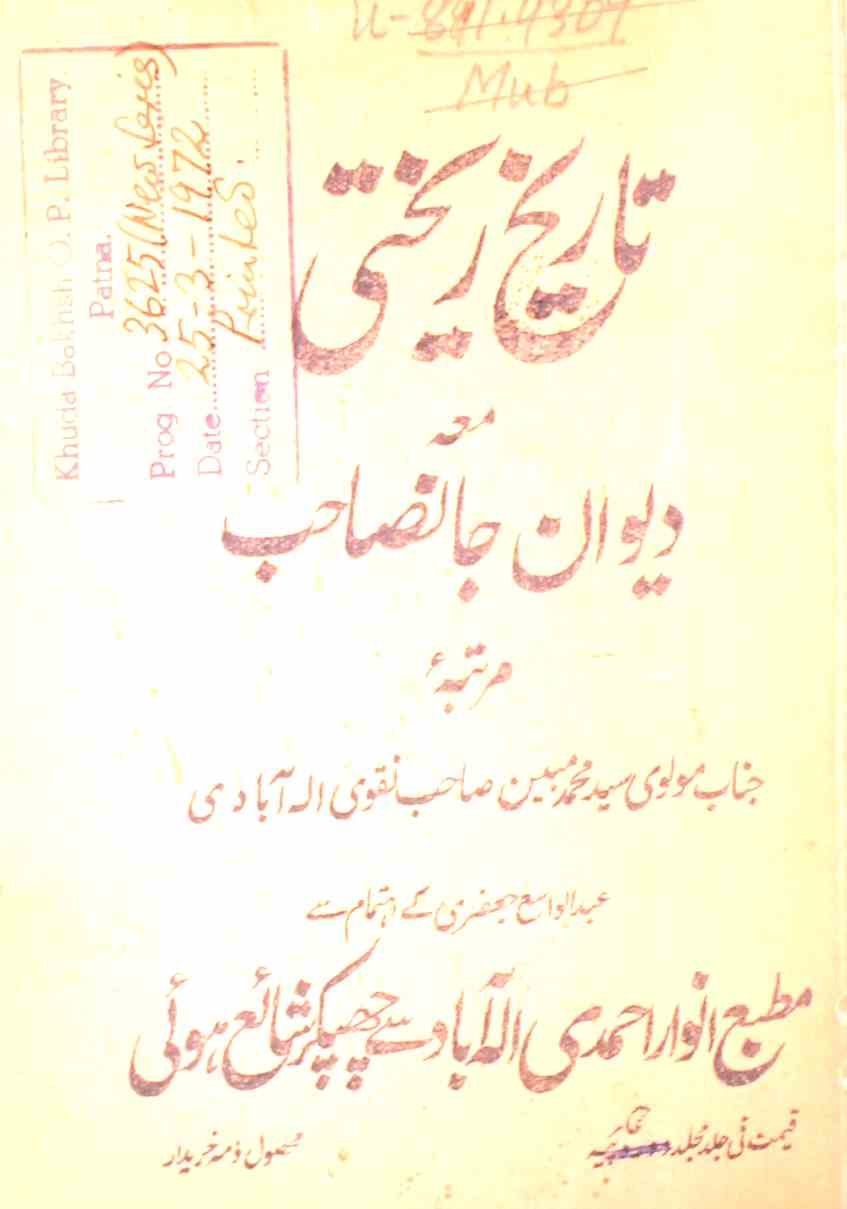 U-891.4309
Mub
Khuda Bakhsh O. P. Library
Patna.
Prog No 3625 (New Series)
Date 25-3-1972
Section Printed.
تاریخ ریختی
معہ
دیوان جانصاحب
مرتبۂ
جناب مولوی سید محمد مبین صاحب نقوی الہ آبادی
عبدالواسع جعفری کے اہتمام سے
مطبع انوار احمدی الہ آباد سے چھپکر شائع ہوئی
قیمت فی جلد مجلد
محصول ذمہ خریدار